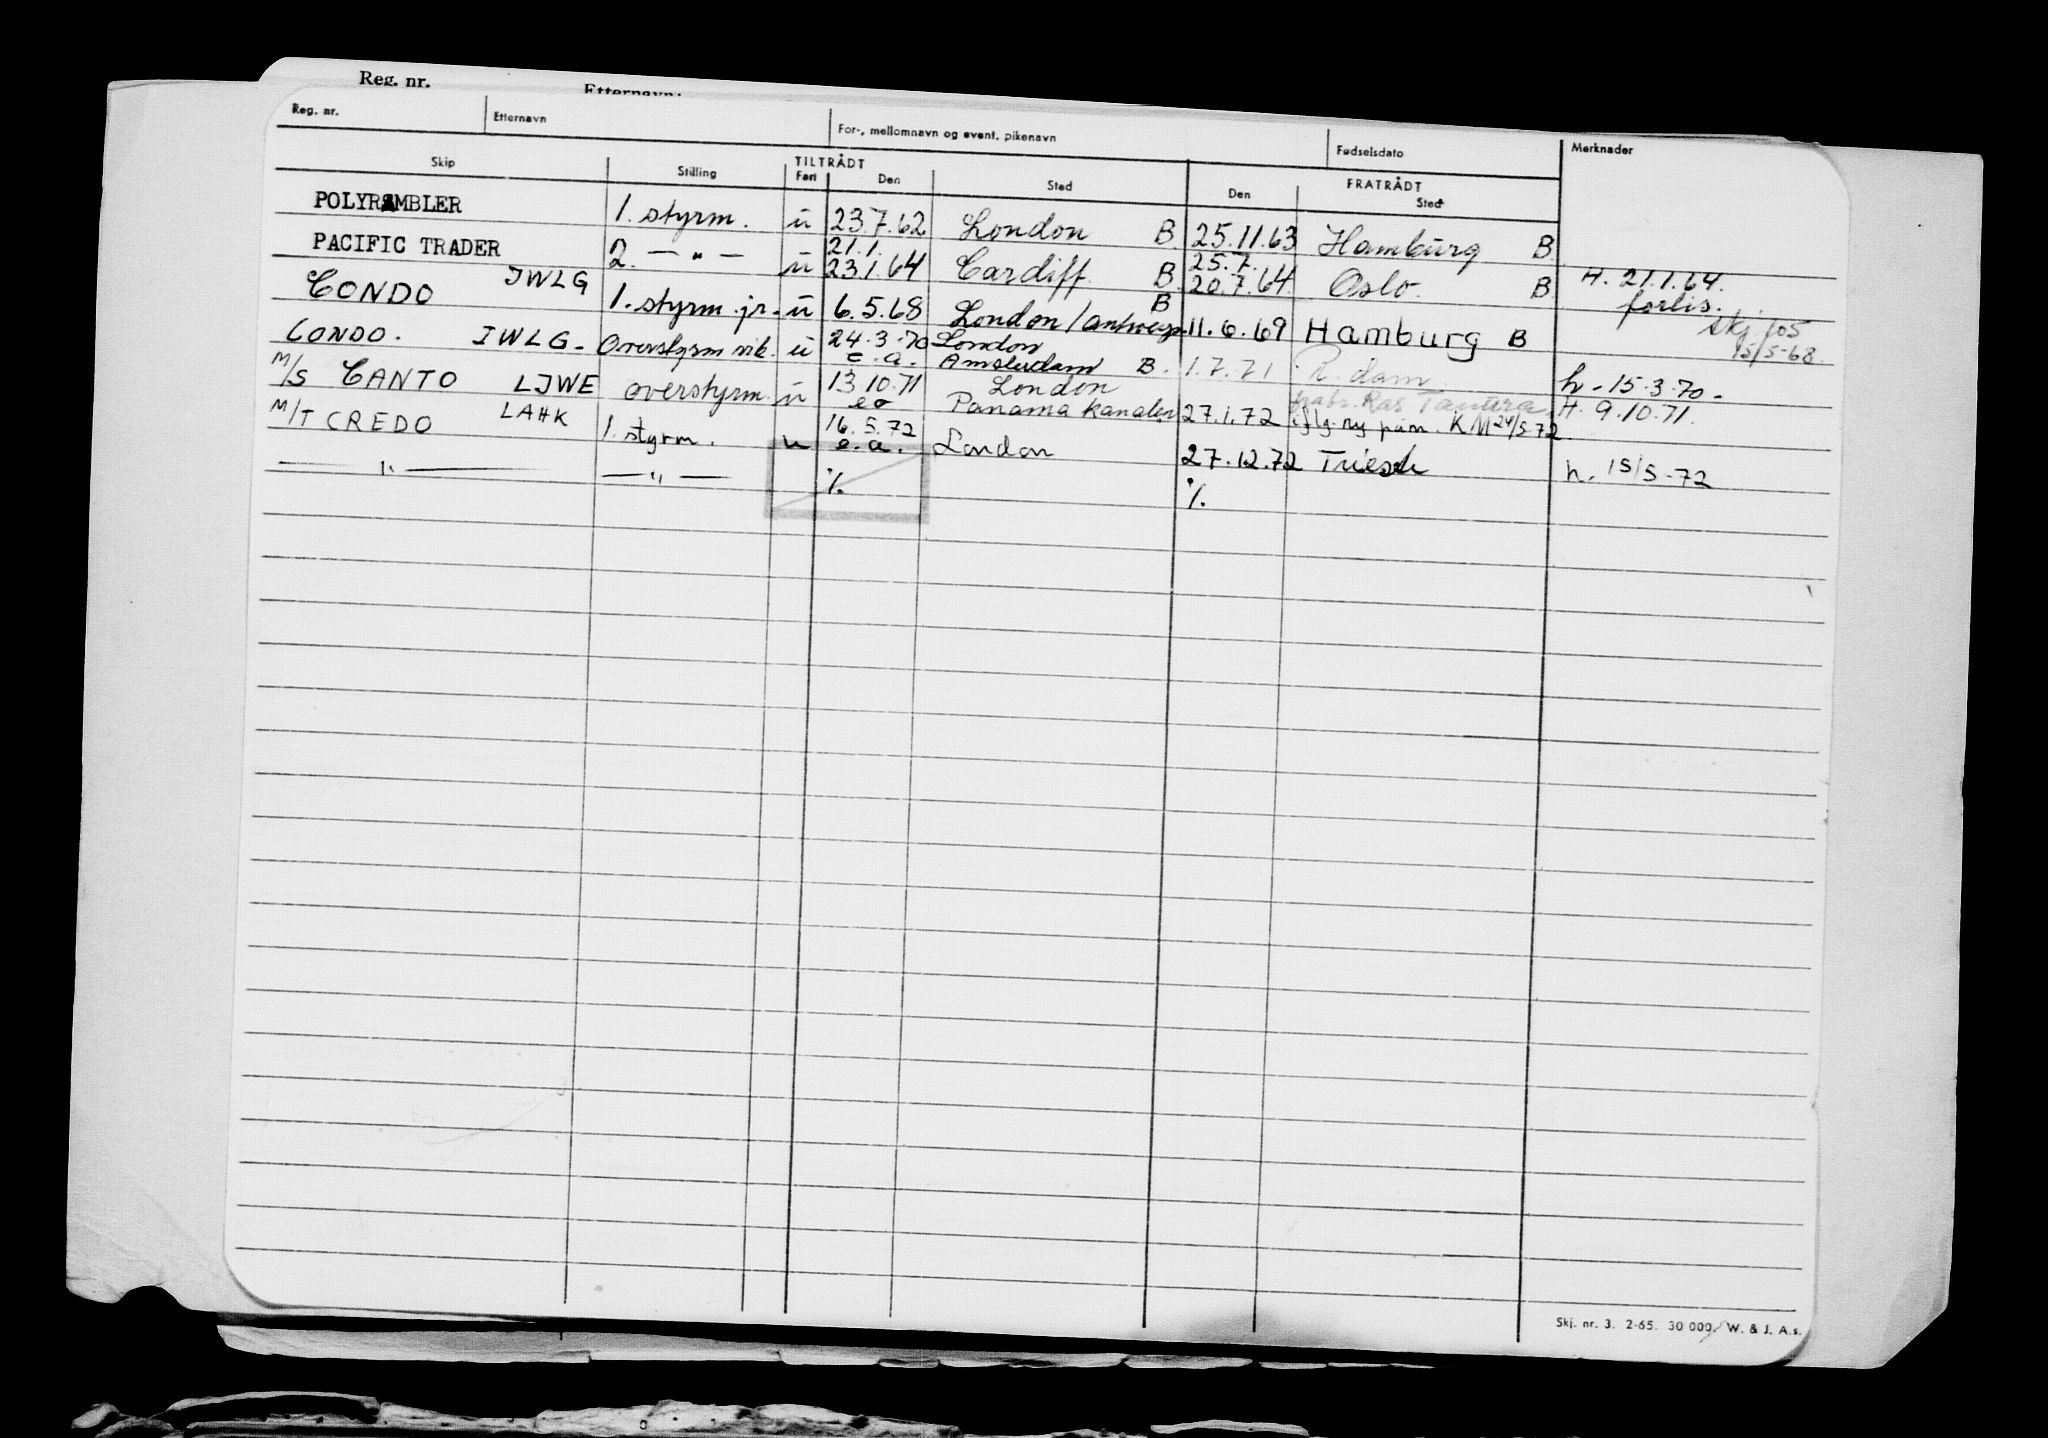 Reg. nr. Etternavn:
Reg. nr. Etternavn For-, mellomnavn og event. pikenavn Fødselsdato Merknader
Skip Stilling TILTRÅDT Fart Den Sted FRATRÅDT Den Sted
POLYRAMBLER 1. styrm. u 23.7.62 London B. 25.11.63 Hamburg B.
21.1. 25.7.
PACIFIC TRADER 2. — " — u 23.1.64 Cardiff B. 20.7.64 Oslo. B H. 21.1.64.
forlis.
CONDO JWLG 1. styrm. jr. u 6.5.68 London/Antwerp. B 11.6.69 Hamburg B skj. 105
15/5-68.
CONDO. JWLG. Overstyrm vik. u 24.3.70 London
e.a. Amsterdam B. 1.7.71 R.dam h. 15.3.70.
M/S CANTO LJWE overstyrm. u 13.10.71 London
eo Panama kanalen 27.1.72 Ras Tanura H. 9.10.71.
iflg. ny påm. KM 24/5 72.
M/T CREDO LAHK 1. styrm. u 16.5.72
e.a. London 27.12.72 Triest h. 15/5-72
— " — — " — %. %.
Skj. nr. 3. 2-65. 30 000. W. & J. A.s.